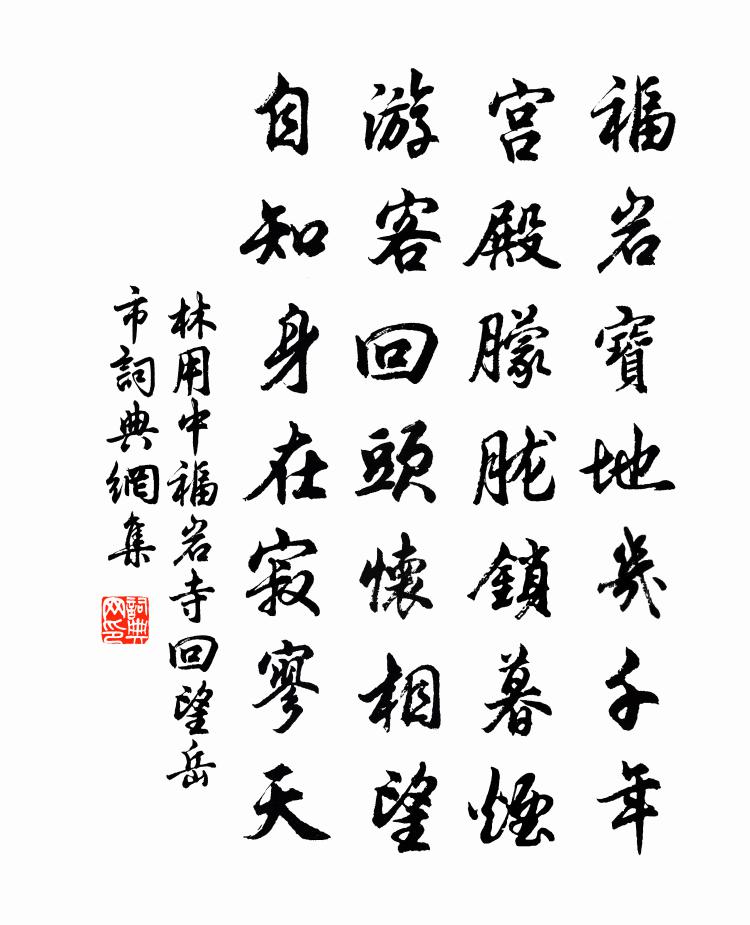 福岩寶地幾千年
宮殿朦朧鎖暮煙
游客回頭懷相望
自知身在寂寥天
林用中福岩寺回望岳
市詞典網集
詞典网印